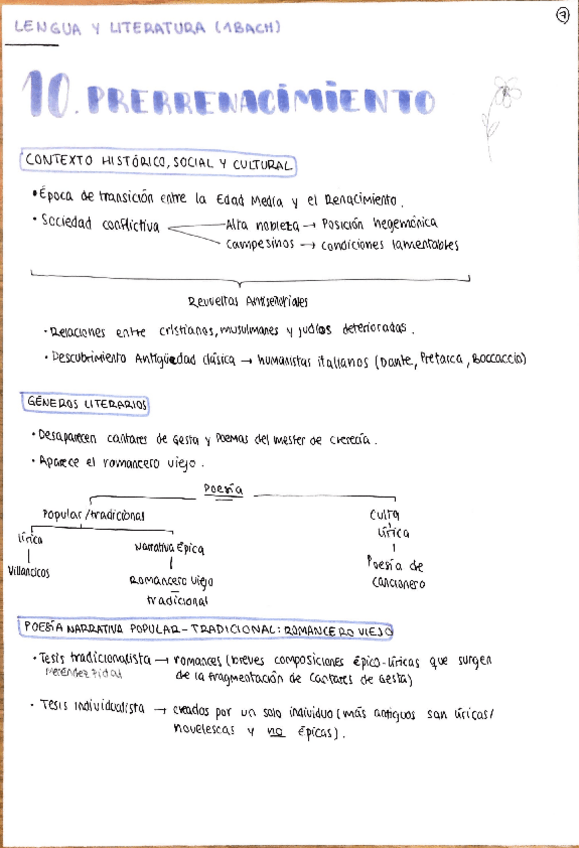 7
LENGUA Y LITERATURA (1BACH)
10. PRERRENACIMIENTO
CONTEXTO HISTÓRICO, SOCIAL Y CULTURAL
• Época de transición entre la Edad Media y el Renacimiento.
• Sociedad conflictiva
Alta nobleza → Posición hegemónica
Campesinos → condiciones lamentables
Revueltas Antiseñoriales
• Relaciones entre cristianos, musulmanes y judíos deterioradas.
• Descubrimiento Antigüedad clásica → humanistas italianos (Dante, Petrarca, Boccaccio)
GÉNEROS LITERARIOS
• Desaparecen cantares de Gesta y Poemas del mester de clerecía.
• Aparece el romancero viejo.
Poesía
Popular/tradicional
Culta
lírica
lírica
Narrativa Épica
Villancicos
Poesía de
cancionero
Romancero Viejo
tradicional
POESÍA NARRATIVA POPULAR-TRADICIONAL: ROMANCERO VIEJO
• Tesis tradicionalista → romances (breves composiciones épico-líricas que surgen
Menéndez Pidal
de la fragmentación de Cantares de Gesta)
• Tesis Individualista → creados por un solo individuo (más antiguos son líricas/
novelescas y no épicas).